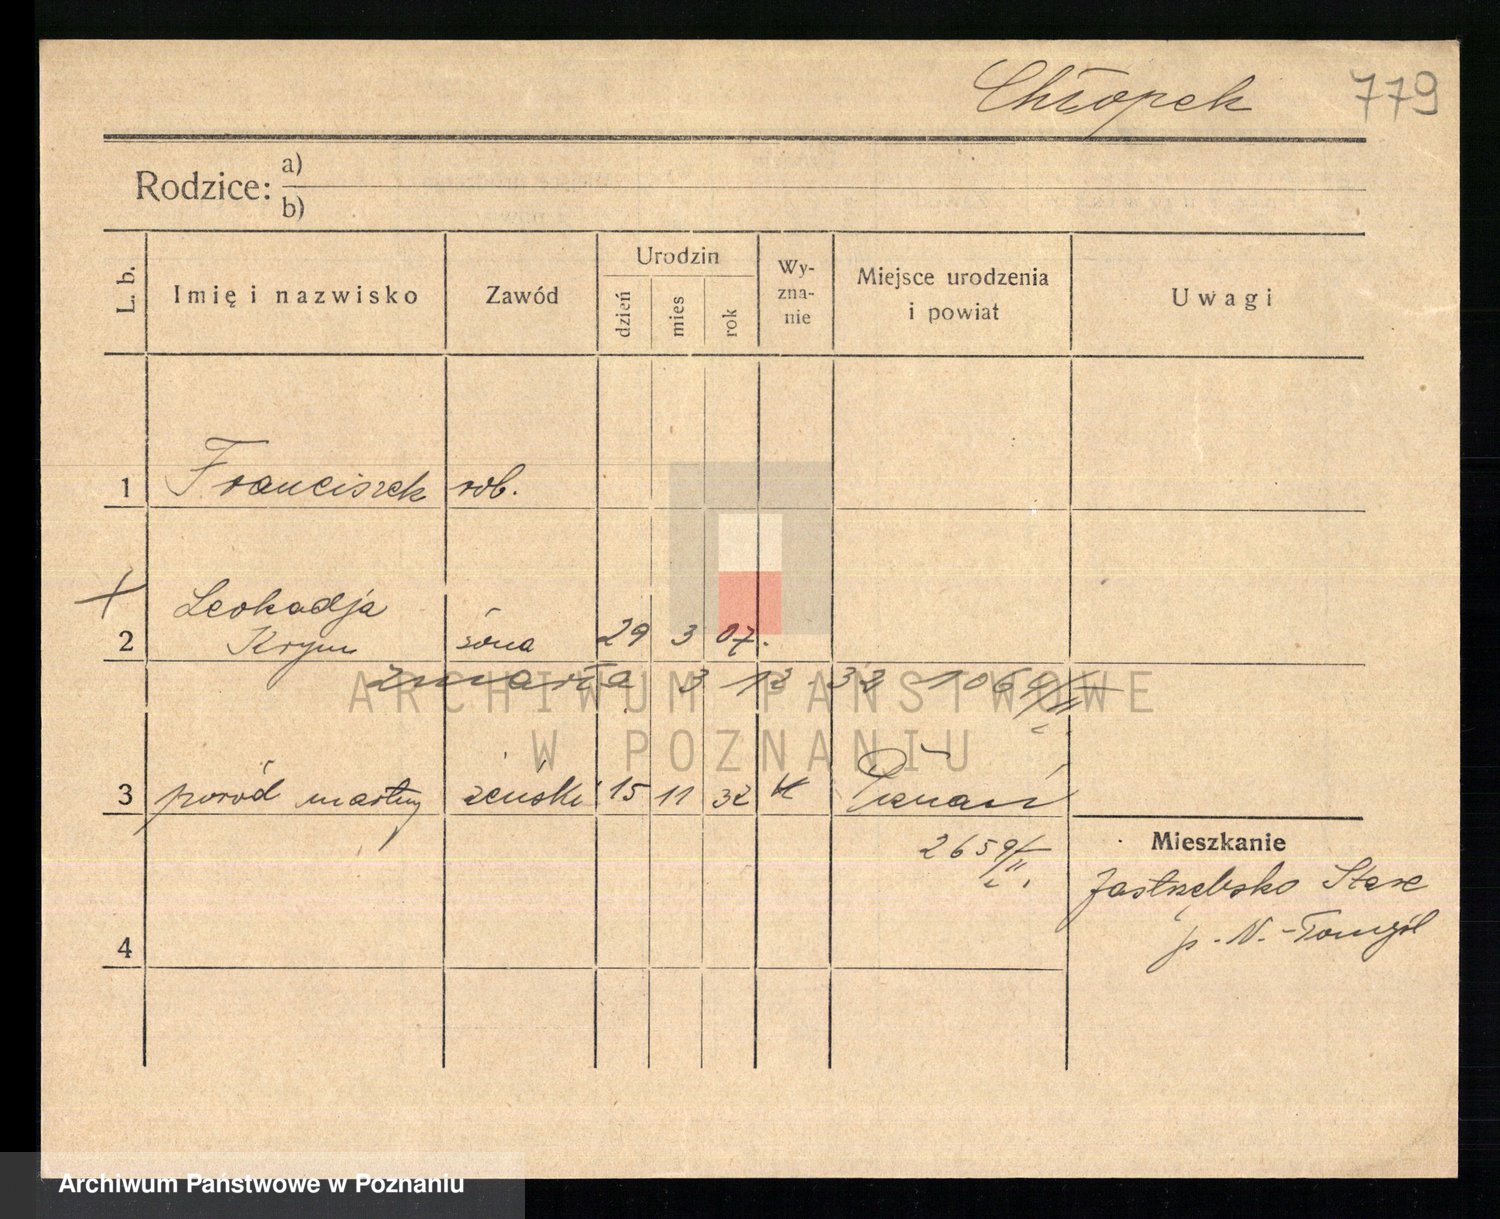 Chłopek 779
Rodzice: a)
b)
L. b.
Imię i nazwisko
Zawód
Urodzin
dzień
mies
rok
Wy-
zna-
nie
Miejsce urodzenia
i powiat
Uwagi
1 Franciszek rob.
Leokadja
2 Krym żona 29 3 07.
zmarła 3 12 32 1064/II
3 poród martwy żeński 15 11 32 k Poznań
2659/II.
Mieszkanie
Jastrzębsko Stare
p. N.-Tomyśl
4
ARCHIWUM PAŃSTWOWE
W POZNANIU
Archiwum Państwowe w Poznaniu